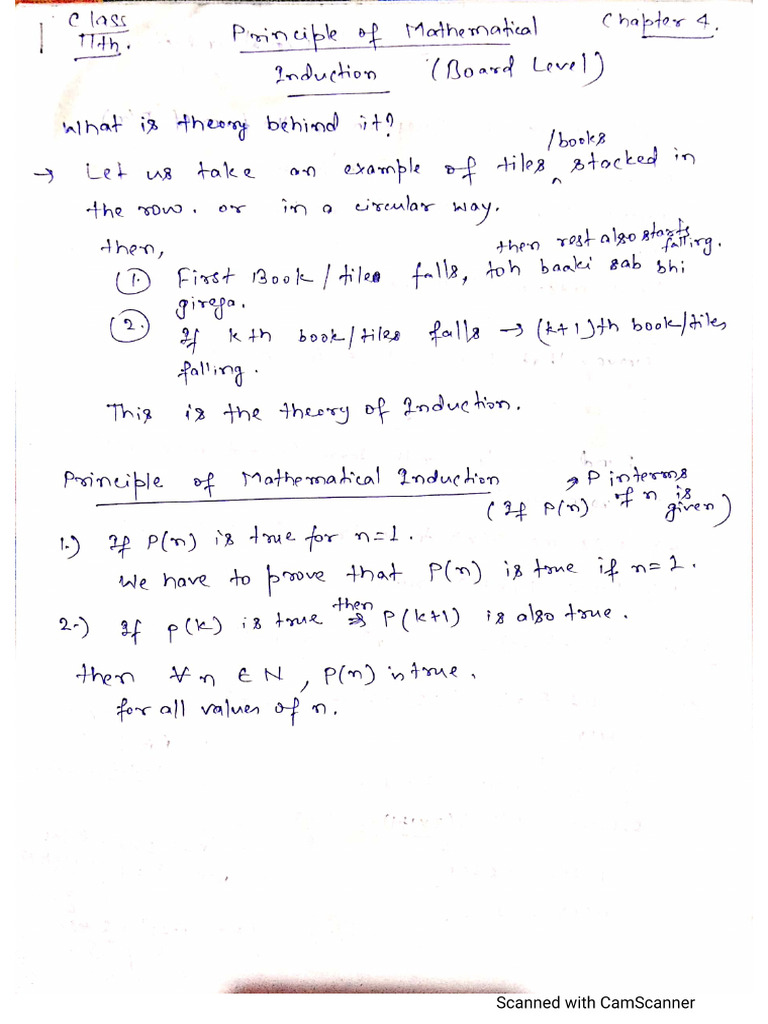 Class 11th.
Principle of Mathematical Chapter 4.
Induction (Board Level)
What is theory behind it?
→ Let us take an example of tiles /books stacked in
the row. or in a circular way.
then,
then rest also starts falling.
(1.) First Book / tiles falls, toh baaki sab bhi
girega.
(2.) If kth book/tiles falls → (k+1)th book/tiles
falling.
This is the theory of Induction.
Principle of Mathematical Induction
(If P(n) → P interms of n is given)
1.) If P(n) is true for n=1.
We have to prove that P(n) is true if n=1.
2.) If P(k) is true then ⇒ P(k+1) is also true.
then ∀ n ∈ N, P(n) is true.
for all values of n.
Scanned with CamScanner